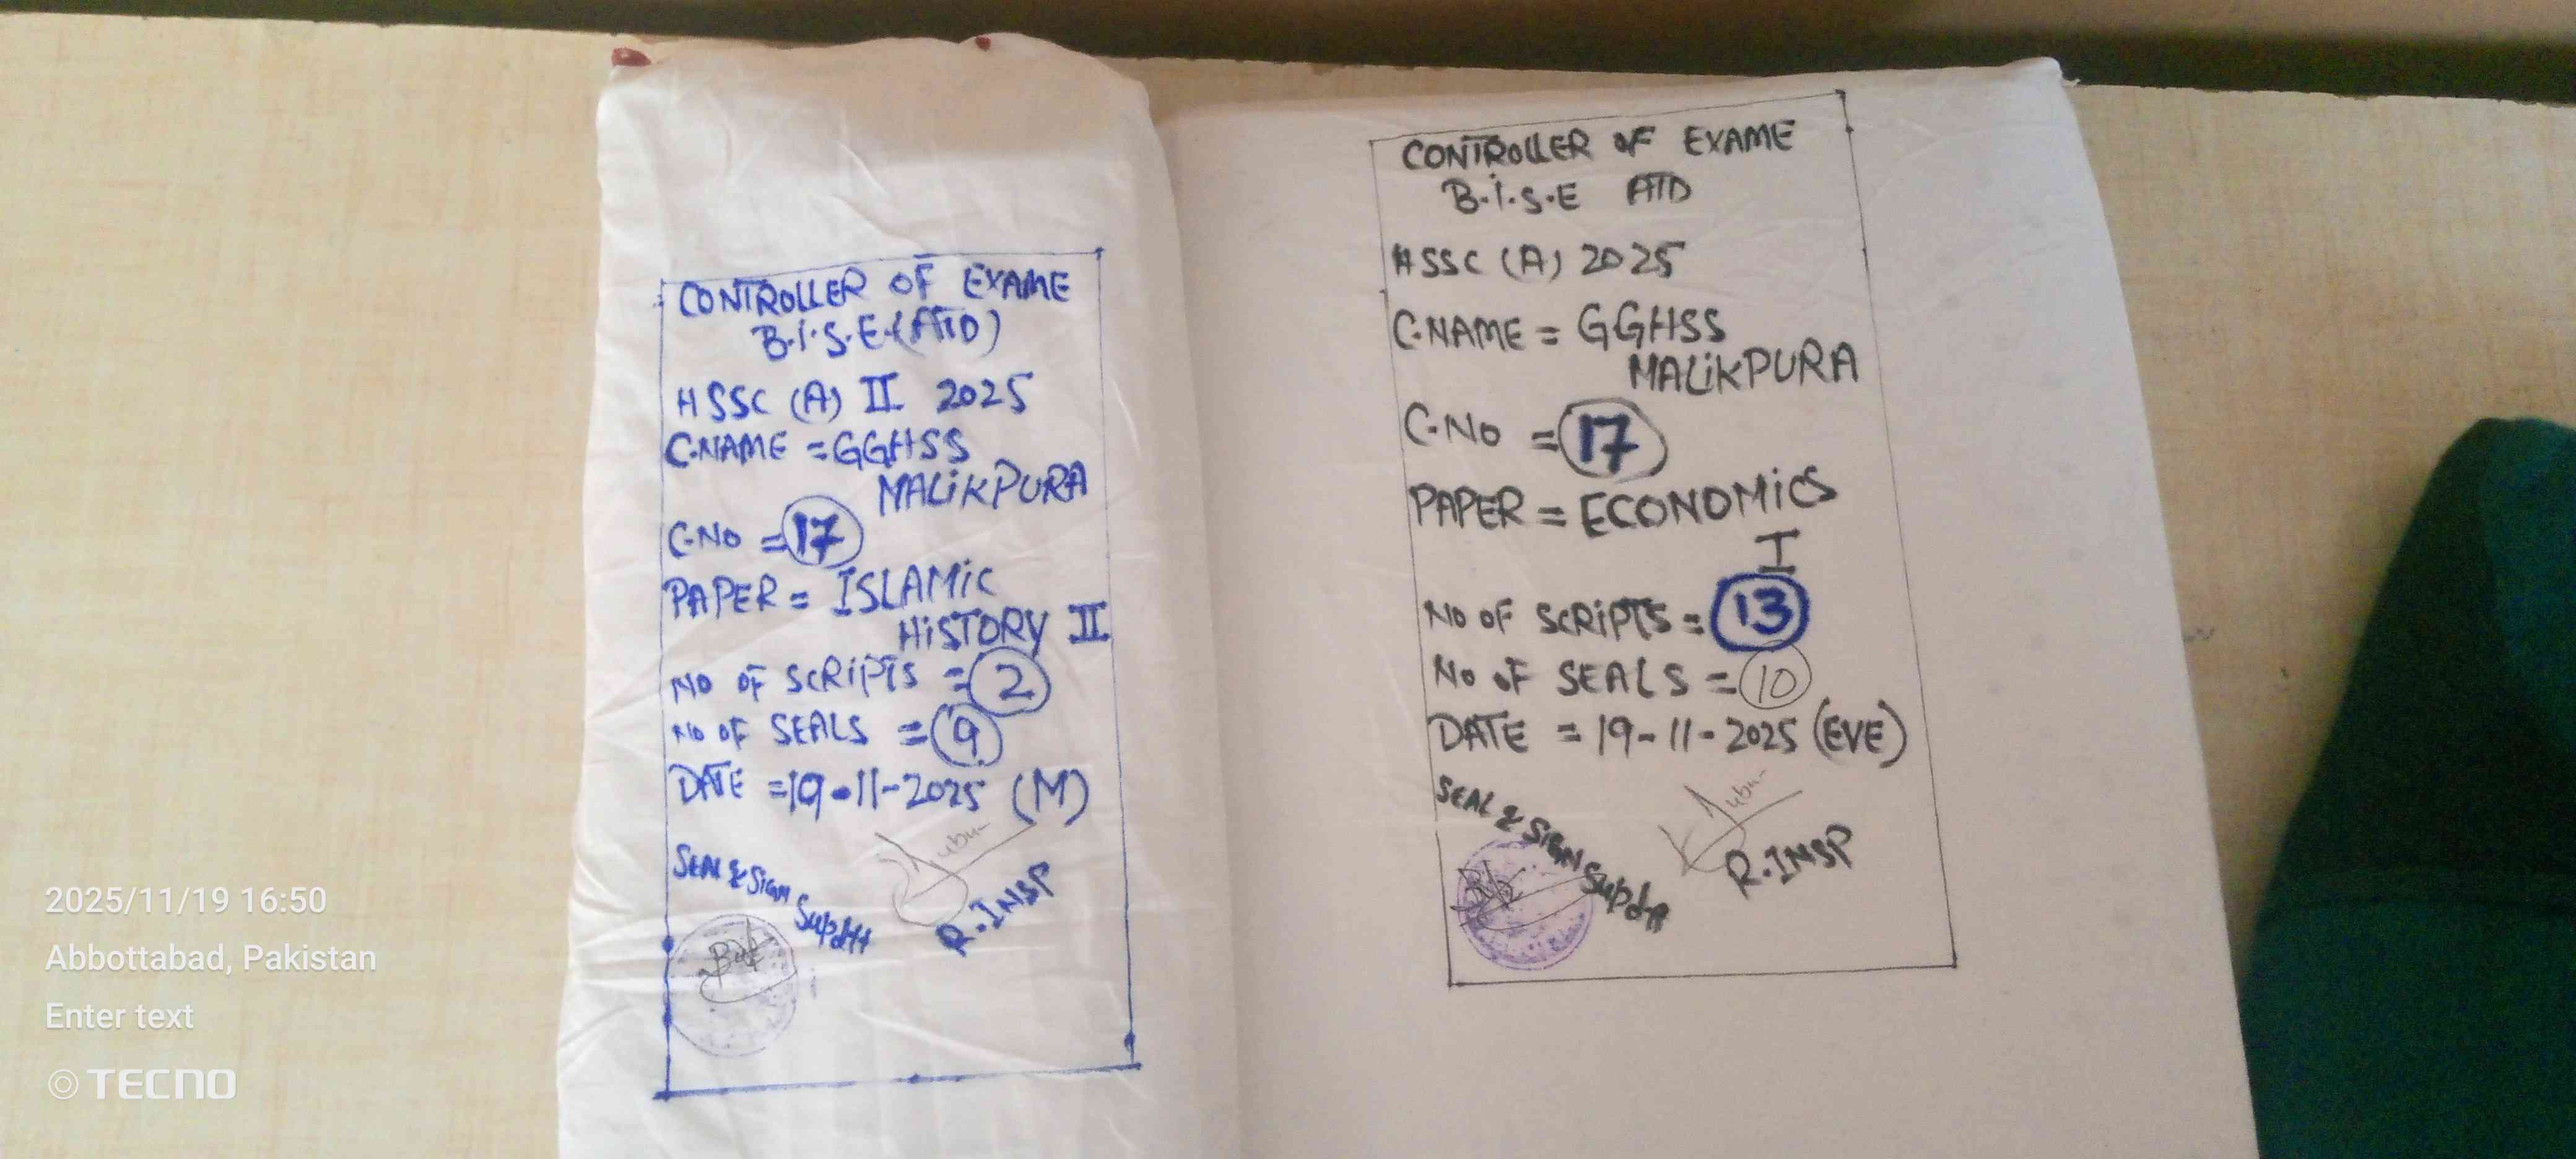 CONTROLLER OF EXAME
B.I.S.E (ATD)
HSSC (A) II 2025
C.NAME = GGHSS
MALIKPURA
C.NO = 17
PAPER = ISLAMIC
HISTORY II
NO OF SCRIPTS = 2
NO OF SEALS = 9
DATE = 19-11-2025 (M)
SEAL & SIGN Supdtt
R.INSP
CONTROLLER OF EXAME
B.I.S.E ATD
HSSC (A) 2025
C.NAME = GGHSS
MALIKPURA
C.NO = 17
PAPER = ECONOMICS
I
NO OF SCRIPTS = 13
NO OF SEALS = 10
DATE = 19-11-2025 (EVE)
SEAL & SIGN Supdtt
R.INSP
2025/11/19 16:50
Abbottabad, Pakistan
Enter text
TECNO